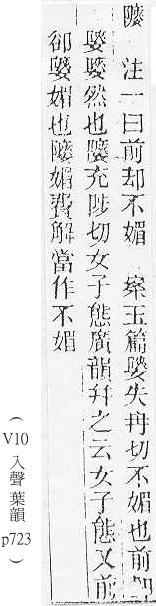 注一曰前却不媚　案玉篇失冉切不媚也前却
然也充陟切女子態廣韻幷之云女子態又前
卻媚也媚費解當作不媚
（V10 入聲 葉韻 p723）